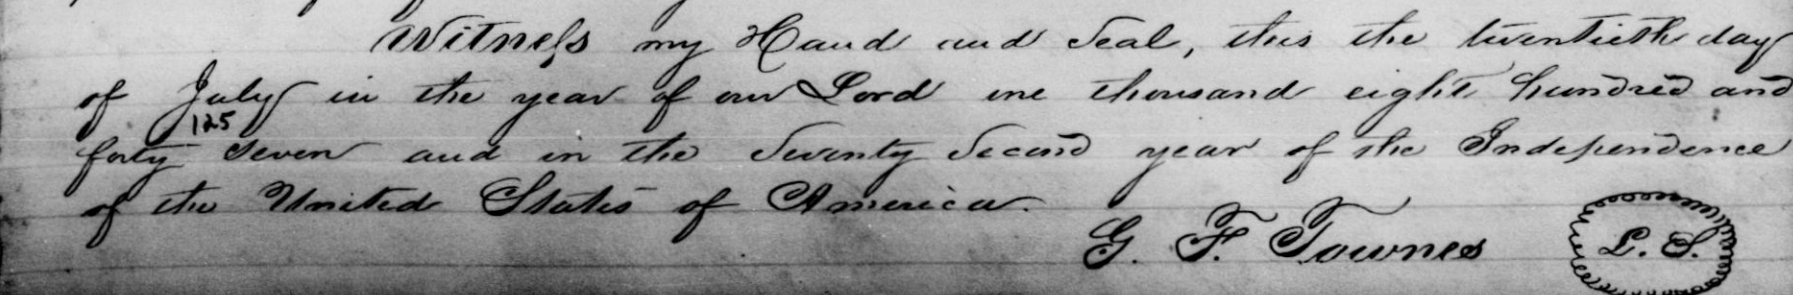 Witness my Hand and Seal, this the twentieth day
of July in the year of our Lord one thousand eight hundred and
125
forty seven and in the Seventy Second year of the Independence
of the United States of America.
G. F. Townes L. S.